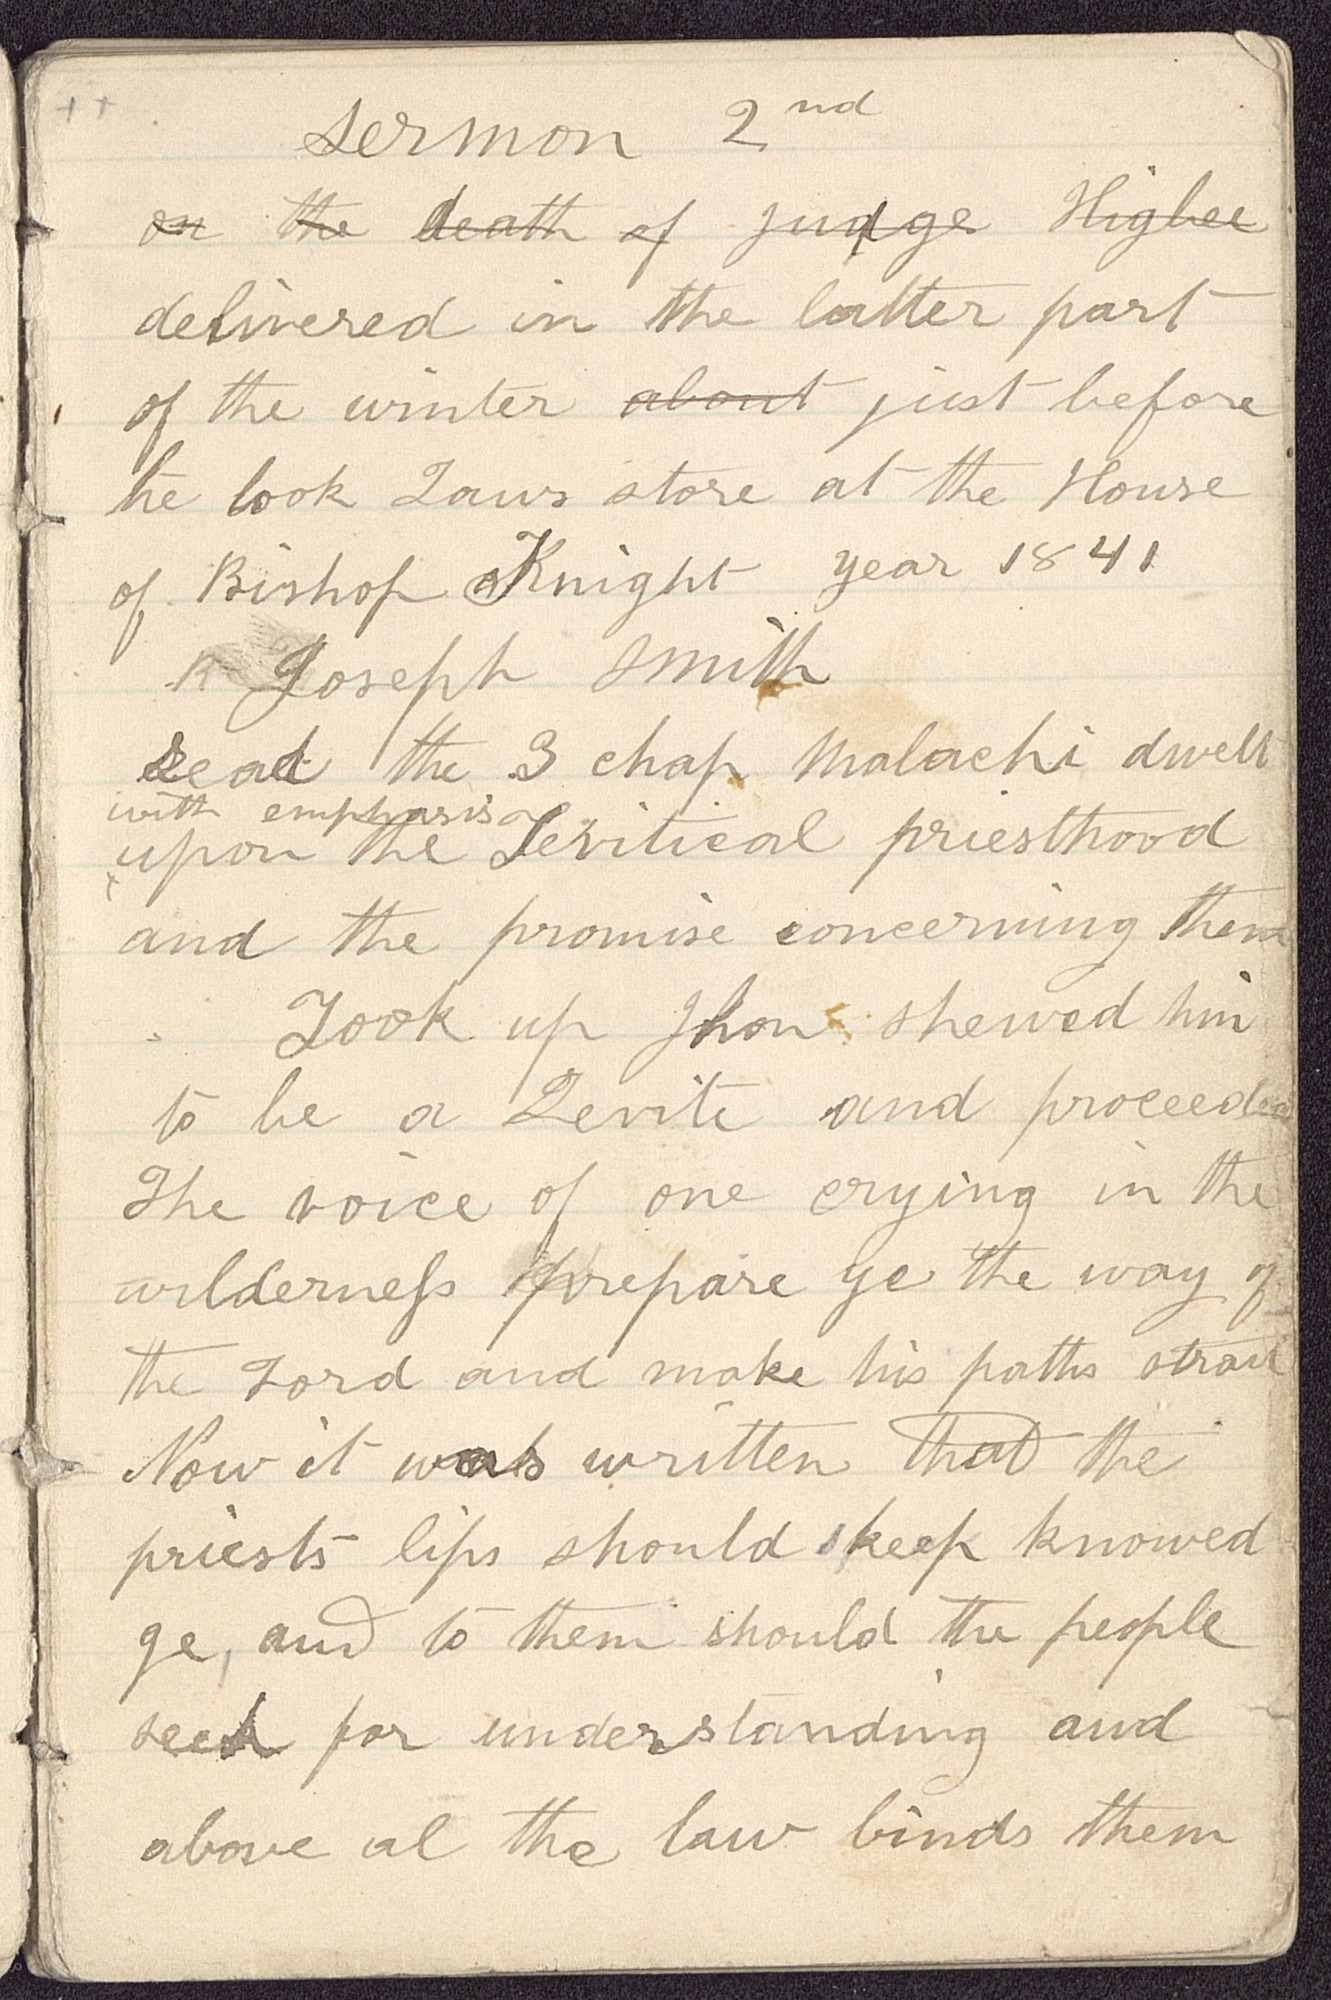 ++
Sermon 2nd
on the death of judge Higbee
delivered in the latter part
of the winter about just before
he look Laws store at the House
of Bishop Knight year 1841
Joseph Smith
Read the 3 chap Malachi dwelt
with emphasis
upon the Levitical priesthood
and the promise concerning them
Took up Jhon shewed him
to be a Levite and proceeded
The voice of one crying in the
wilderneſs prepare ye the way of
the Lord and make his paths strait
Now it was written that the
priests lips should keep knowed
ge, and to them should the people
seek for understanding and
above al the law binds them